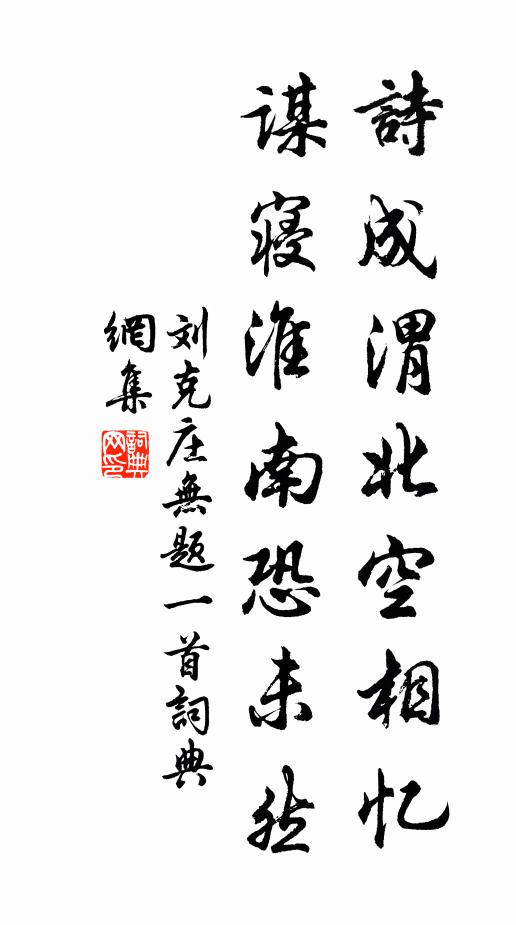 詩成渭北空相忆
謀寝淮南恐未然
刘克庄無题一首詞典
網集
詞典网印